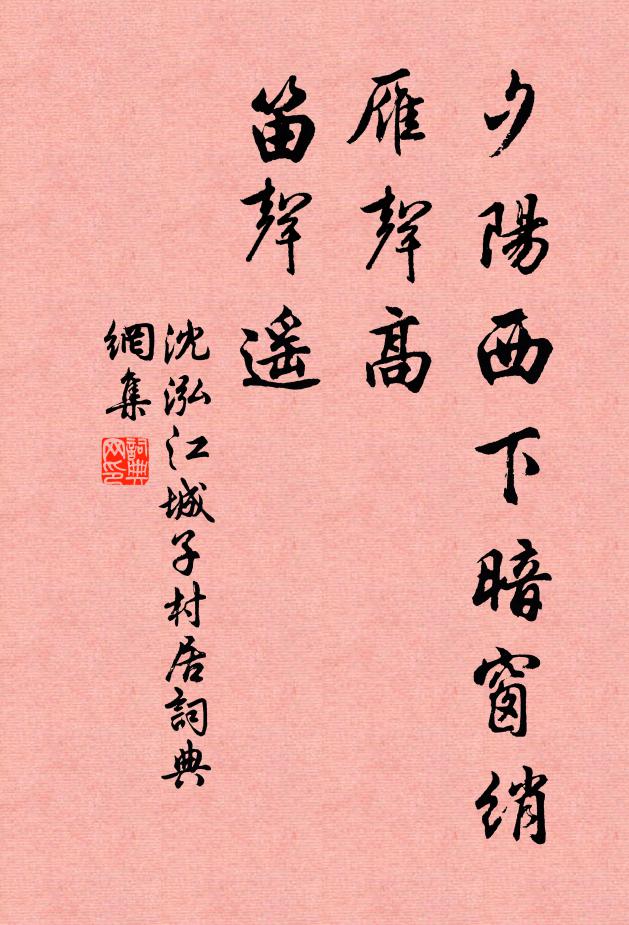 夕陽西下暗窗綃
雁聲高
笛聲遥
沈泓江城子村居詞典
網集
詞典網印